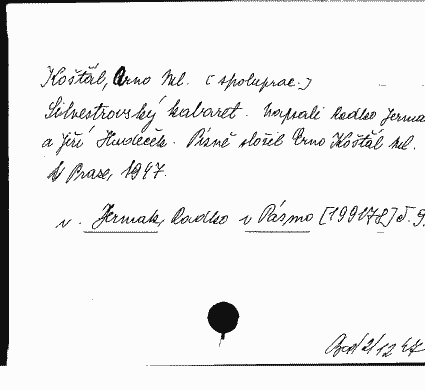 Košťál, Arno ml. [spoluprac.]
Silvestrovský kabaret. Napsali Radko Jerma
a Jiří Hudeček. Písně složil Arno Košťál ml.
V Praze, 1947.
v. Jermak, Radko v Pásmo [199178] č. 9.
2/12 47